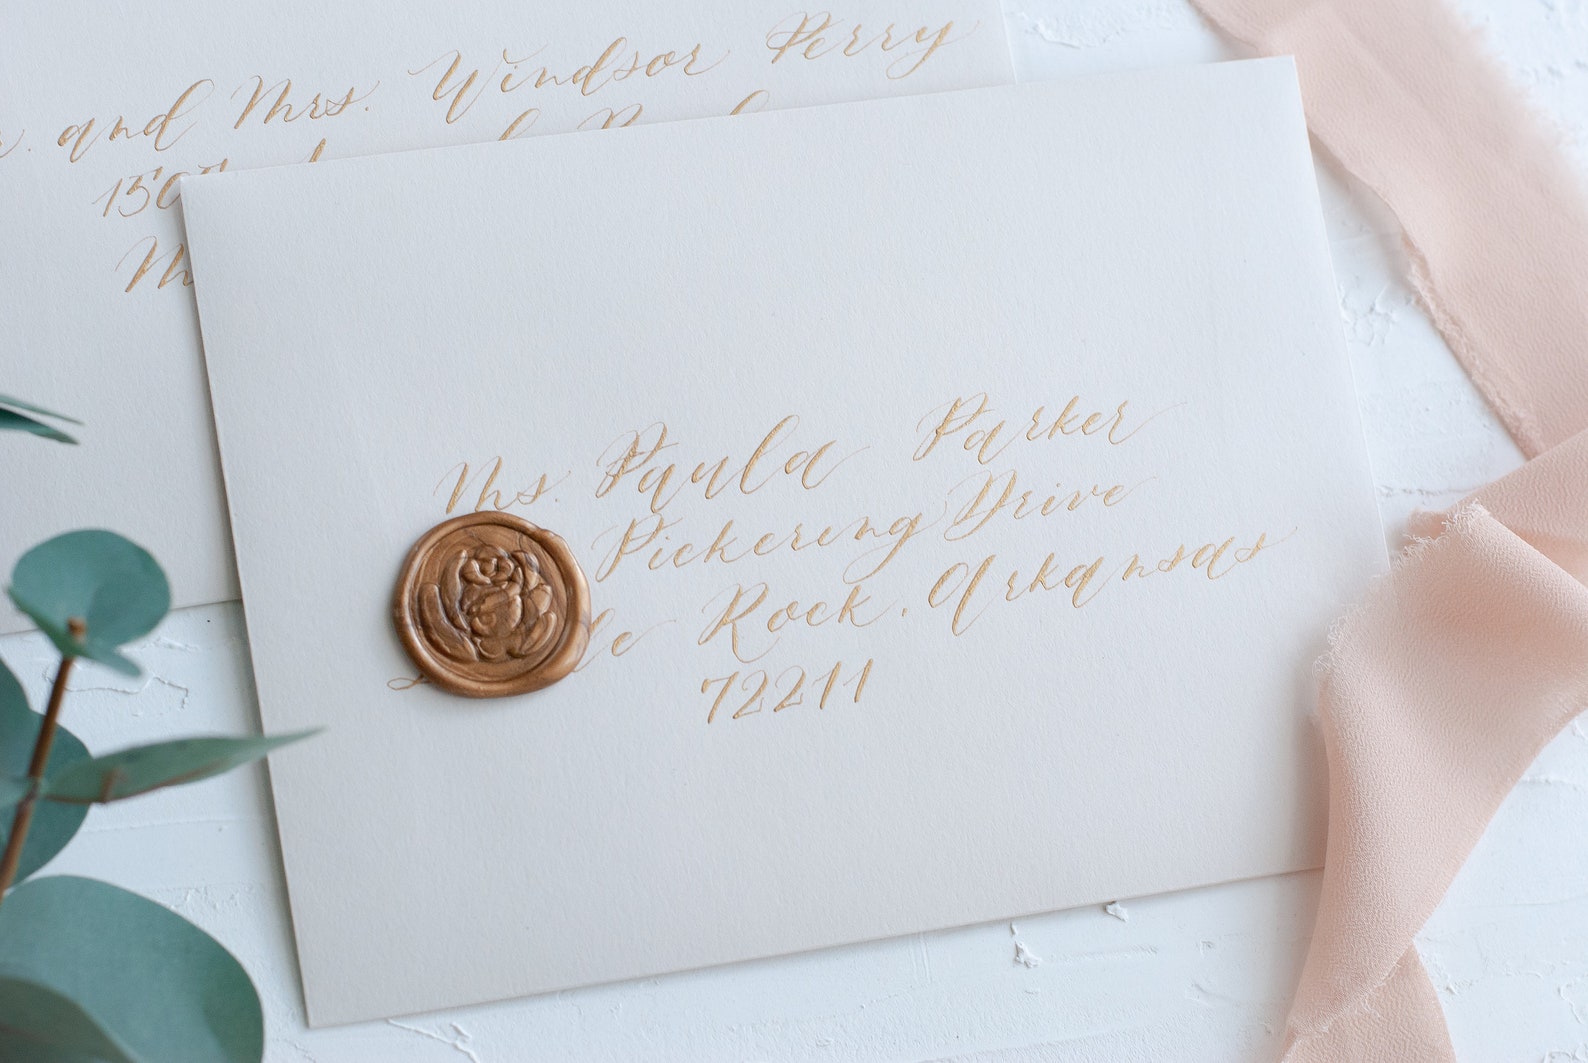 and Mrs. Windsor Perry
Ms. Paula Parker
Pickering Drive
Rock, Arkansas
72211